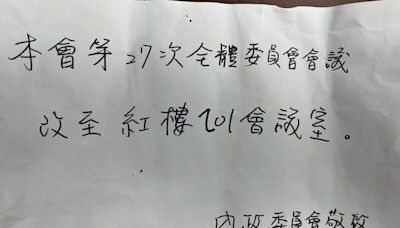 本會第27次全體委員會會議
改至紅樓201會議室。
內政委員會敬啟